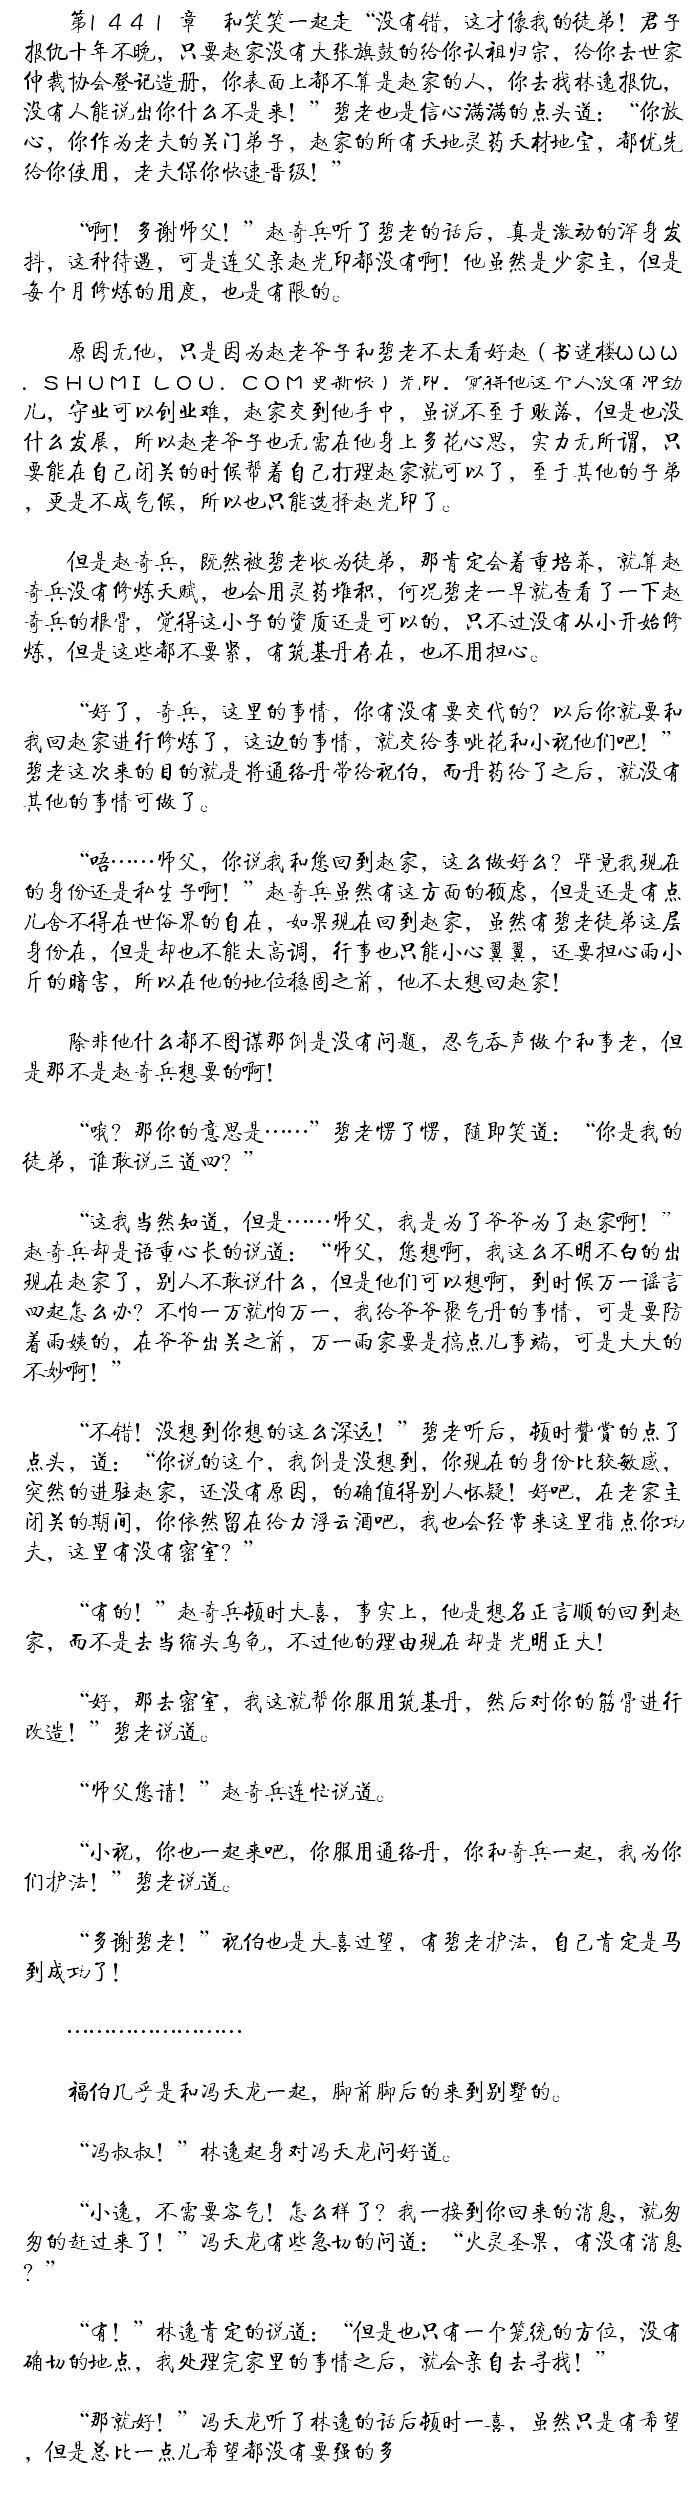 第1441章 和笑笑一起走“没有错，这才像我的徒弟！君子
报仇十年不晚，只要赵家没有大张旗鼓的给你认祖归宗，给你去世家
仲裁协会登记造册，你表面上都不算是赵家的人，你去找林逸报仇，
没有人能说出你什么不是来！”碧老也是信心满满的点头道：“你放
心，你作为老夫的关门弟子，赵家的所有天地灵药天材地宝，都优先
给你使用，老夫保你快速晋级！”
“啊！多谢师父！”赵奇兵听了碧老的话后，真是激动的浑身发
抖，这种待遇，可是连父亲赵光印都没有啊！他虽然是少家主，但是
每个月修炼的用度，也是有限的。
原因无他，只是因为赵老爷子和碧老不太看好赵（书迷楼WWW
．SHUMILOU．COM更新快）光印，觉得他这个人没有冲劲
儿，守业可以创业难，赵家交到他手中，虽说不至于败落，但是也没
什么发展，所以赵老爷子也无需在他身上多花心思，实力无所谓，只
要能在自己闭关的时候帮着自己打理赵家就可以了，至于其他的子弟
，更是不成气候，所以也只能选择赵光印了。
但是赵奇兵，既然被碧老收为徒弟，那肯定会着重培养，就算赵
奇兵没有修炼天赋，也会用灵药堆积，何况碧老一早就查看了一下赵
奇兵的根骨，觉得这小子的资质还是可以的，只不过没有从小开始修
炼，但是这些都不要紧，有筑基丹存在，也不用担心。
“好了，奇兵，这里的事情，你有没有要交代的？以后你就要和
我回赵家进行修炼了，这边的事情，就交给李呲花和小祝他们吧！”
碧老这次来的目的就是将通络丹带给祝伯，而丹药给了之后，就没有
其他的事情可做了。
“唔……师父，你说我和您回到赵家，这么做好么？毕竟我现在
的身份还是私生子啊！”赵奇兵虽然有这方面的顾虑，但是还是有点
儿舍不得在世俗界的自在，如果现在回到赵家，虽然有碧老徒弟这层
身份在，但是却也不能太高调，行事也只能小心翼翼，还要担心雨小
斤的暗害，所以在他的地位稳固之前，他不太想回赵家！
除非他什么都不图谋那倒是没有问题，忍气吞声做个和事老，但
是那不是赵奇兵想要的啊！
“哦？那你的意思是……”碧老愣了愣，随即笑道：“你是我的
徒弟，谁敢说三道四？”
“这我当然知道，但是……师父，我是为了爷爷为了赵家啊！”
赵奇兵却是语重心长的说道：“师父，您想啊，我这么不明不白的出
现在赵家了，别人不敢说什么，但是他们可以想啊，到时候万一谣言
四起怎么办？不怕一万就怕万一，我给爷爷聚气丹的事情，可是要防
着雨姨的，在爷爷出关之前，万一雨家要是搞点儿事端，可是大大的
不妙啊！”
“不错！没想到你想的这么深远！”碧老听后，顿时赞赏的点了
点头，道：“你说的这个，我倒是没想到，你现在的身份比较敏感，
突然的进驻赵家，还没有原因，的确值得别人怀疑！好吧，在老家主
闭关的期间，你依然留在给力浮云酒吧，我也会经常来这里指点你功
夫，这里有没有密室？”
“有的！”赵奇兵顿时大喜，事实上，他是想名正言顺的回到赵
家，而不是去当缩头乌龟，不过他的理由现在却是光明正大！
“好，那去密室，我这就帮你服用筑基丹，然后对你的筋骨进行
改造！”碧老说道。
“师父您请！”赵奇兵连忙说道。
“小祝，你也一起来吧，你服用通络丹，你和奇兵一起，我为你
们护法！”碧老说道。
“多谢碧老！”祝伯也是大喜过望，有碧老护法，自己肯定是马
到成功了！
……………………
福伯几乎是和冯天龙一起，脚前脚后的来到别墅的。
“冯叔叔！”林逸起身对冯天龙问好道。
“小逸，不需要客气！怎么样了？我一接到你回来的消息，就匆
匆的赶过来了！”冯天龙有些急切的问道：“火灵圣果，有没有消息
？”
“有！”林逸肯定的说道：“但是也只有一个笼统的方位，没有
确切的地点，我处理完家里的事情之后，就会亲自去寻找！”
“那就好！”冯天龙听了林逸的话后顿时一喜，虽然只是有希望
，但是总比一点儿希望都没有要强的多